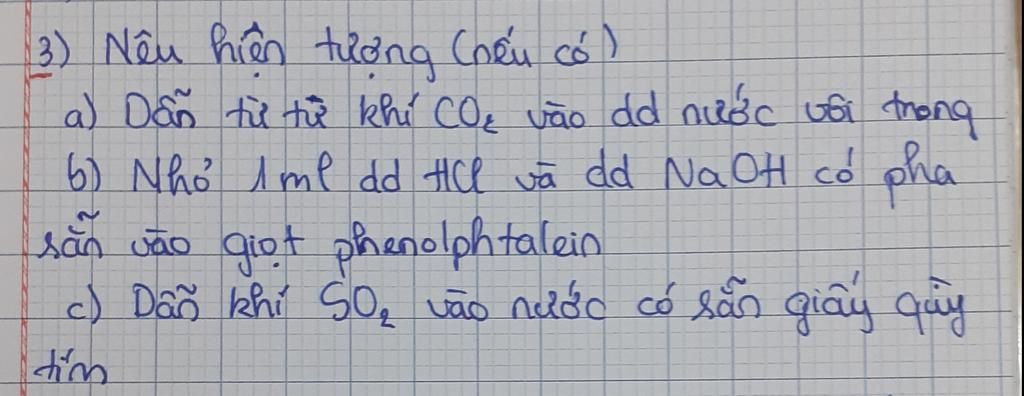 3) Nêu hiện tượng (nếu có)
a) Dẫn từ từ khí CO₂ vào dd nước vôi trong
b) Nhỏ 1ml dd HCl và dd NaOH có pha
sẵn vào giọt phenolphtalein
c) Dẫn khí SO₂ vào nước có sẵn giấy quỳ
tím